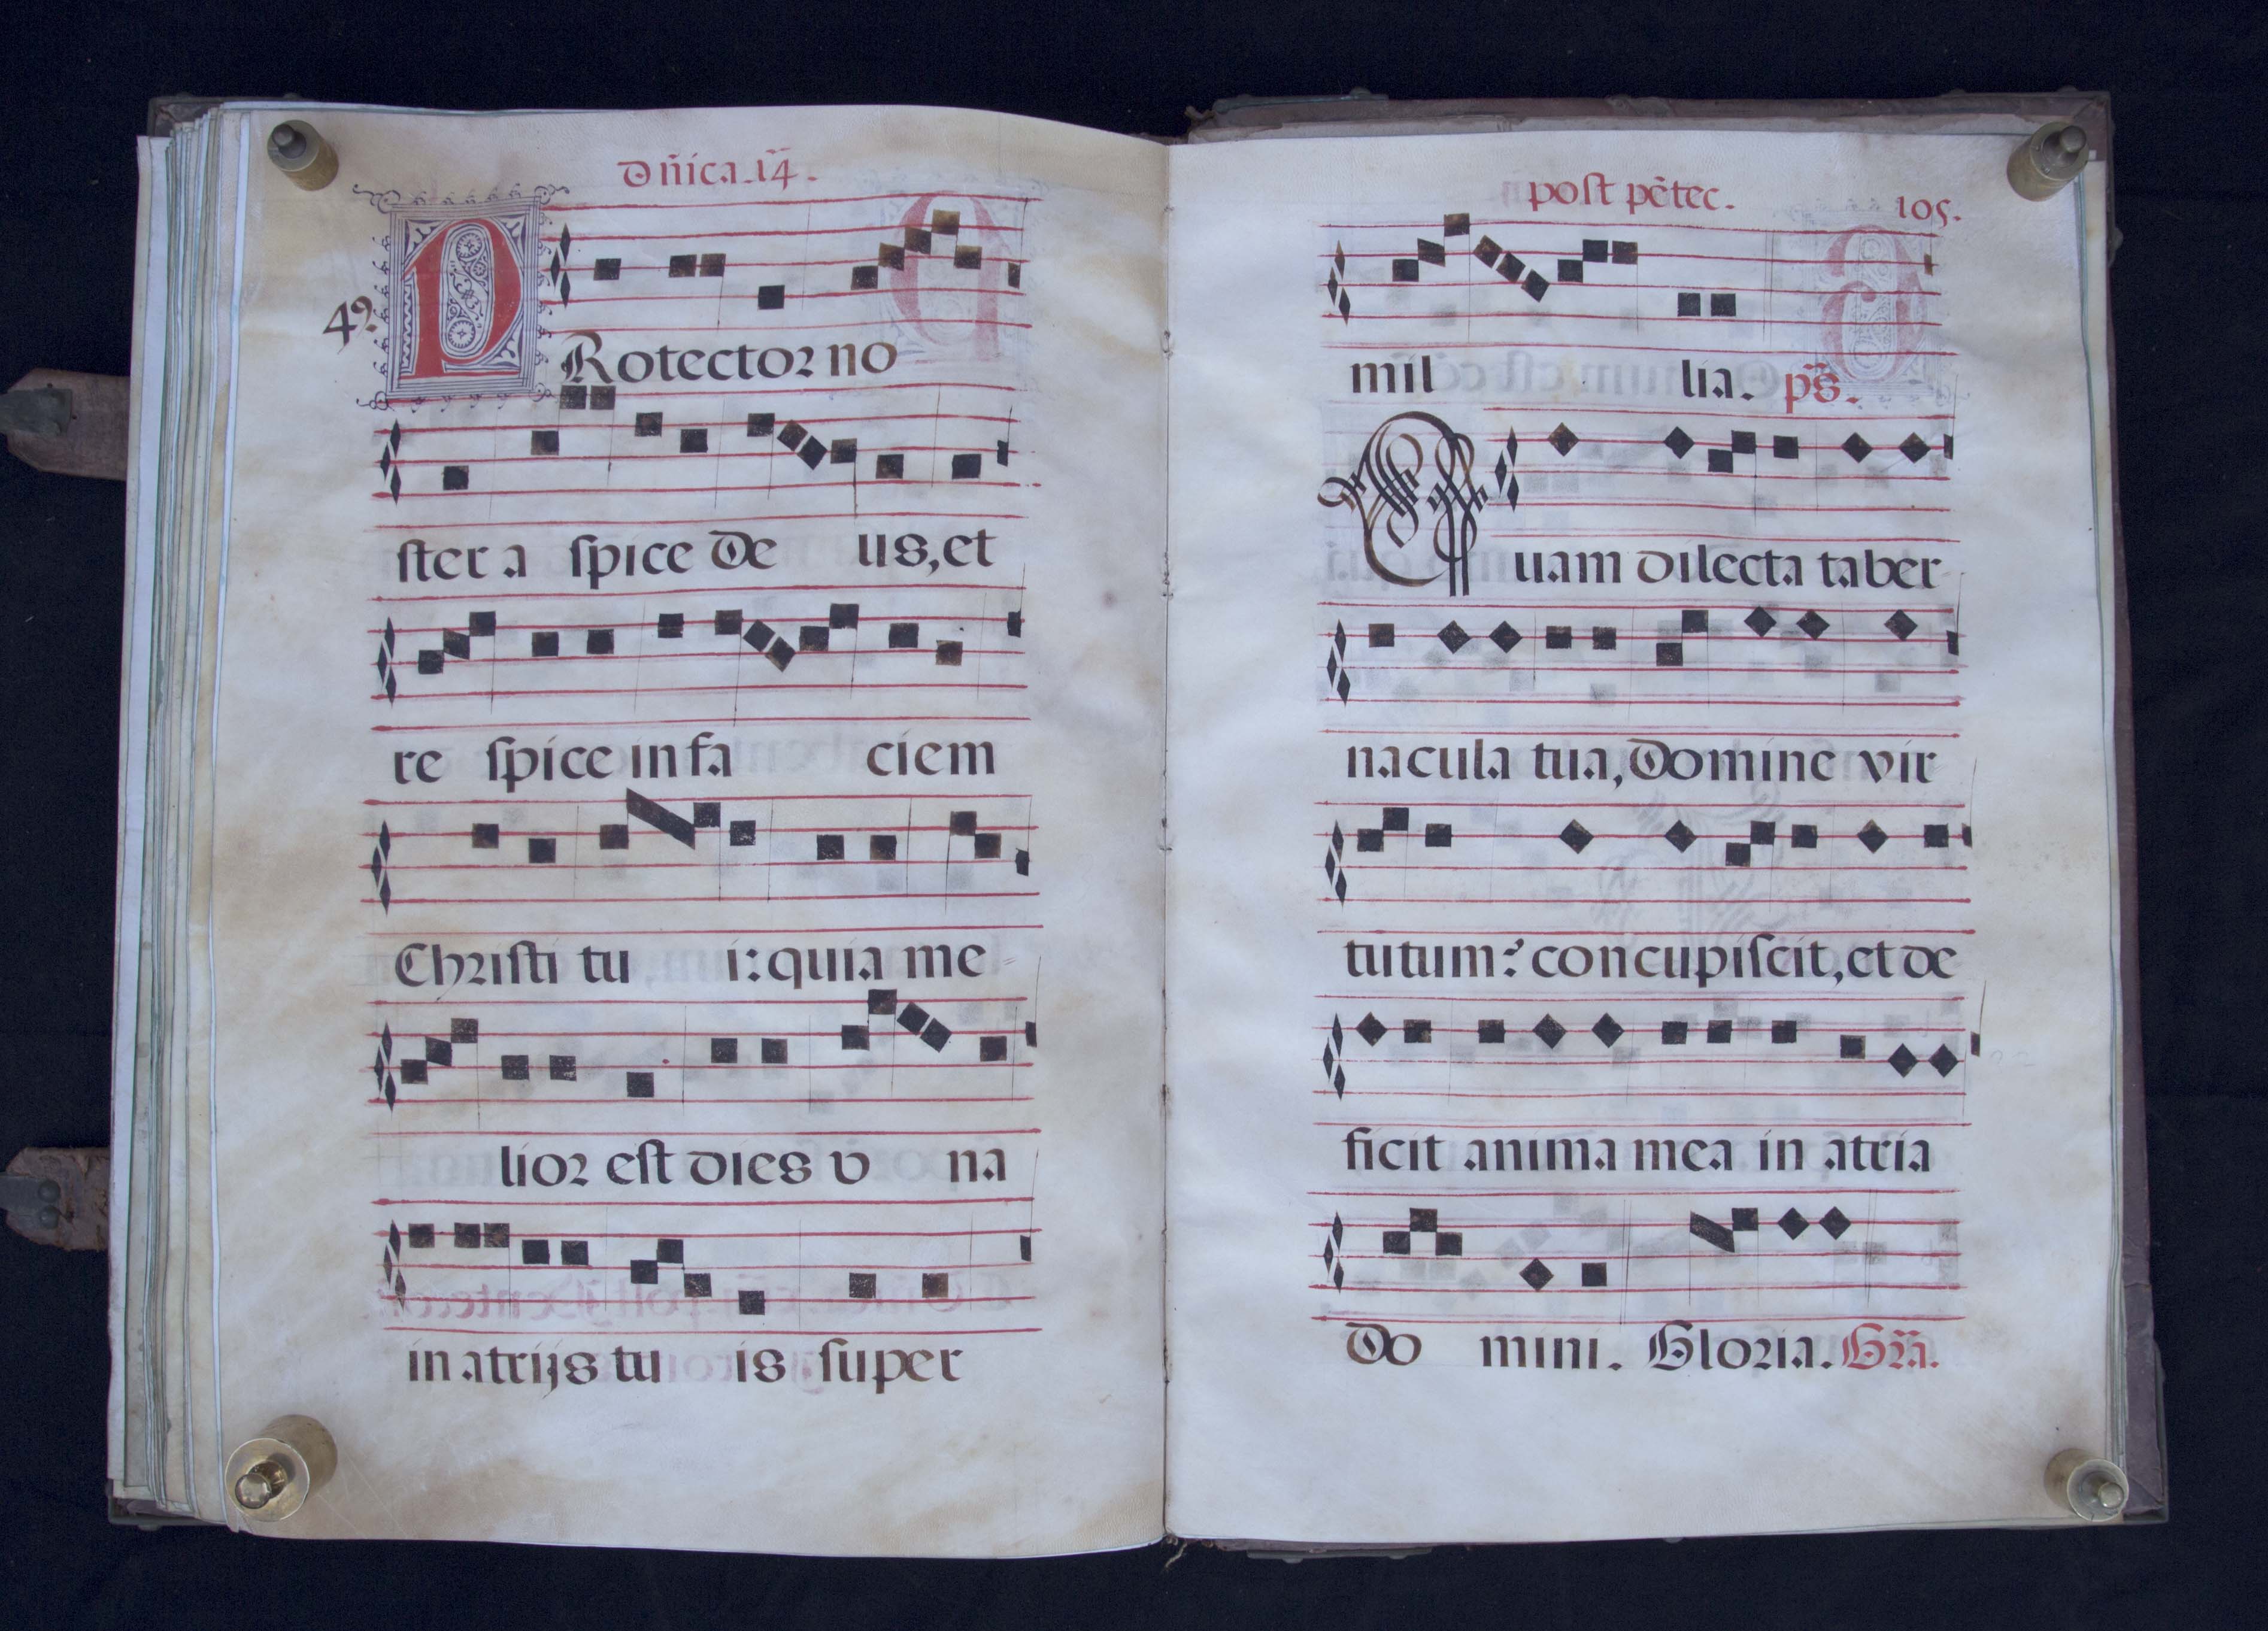 Dñica. 14.
4º.
PRotector no
ster a spice De us, et
re spice in fa ciem
Christi tu i: quia me
lior est dies v na
in atrijs tu is super
post pẽtec. 105.
mil lia. ps̃.
Quam dilecta taber
nacula tua, Domine vir
tutum: concupiscit, et de
ficit anima mea in atria
Do mini. Gloria. Gr̃a.